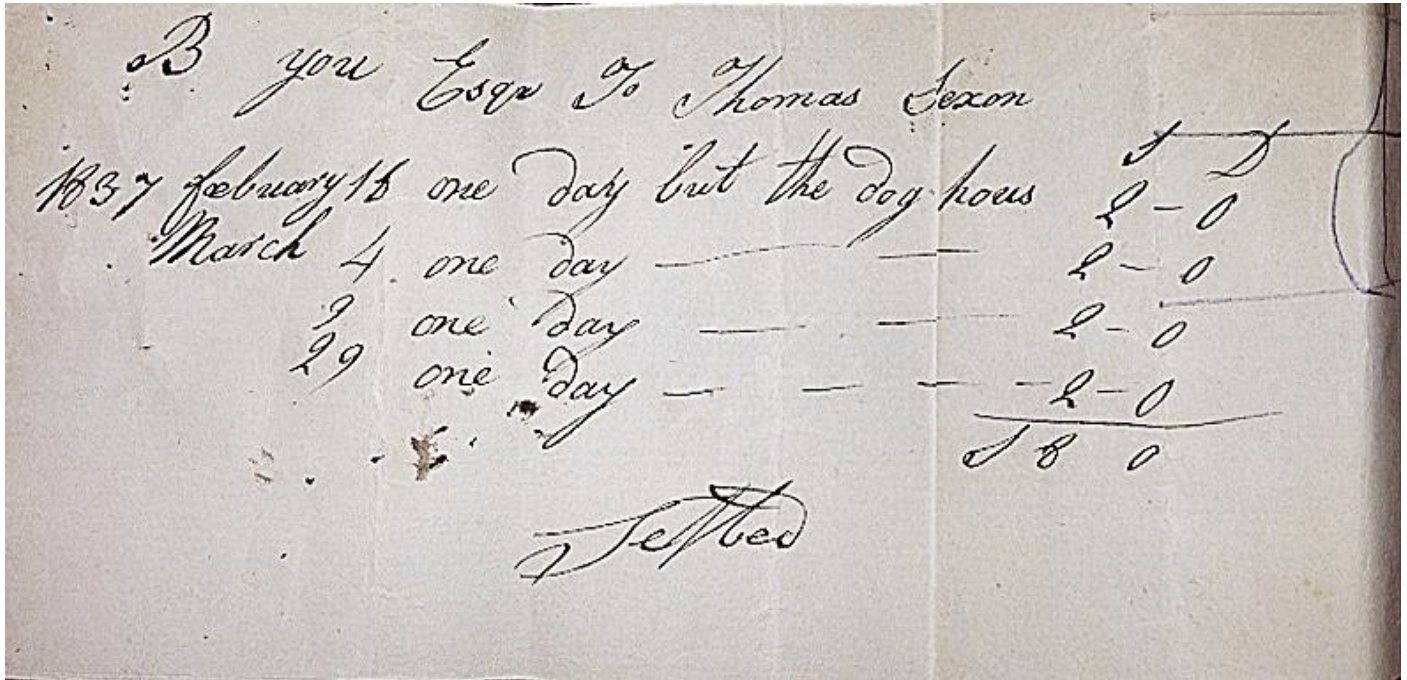 B you Esqr To Thomas Sexon
S D
1837 febuary 18 one day but the dog hous 2 - 0
March 4 one day 2 - 0
9 one day 2 - 0
29 one day 2 - 0
S 8 0
Settled